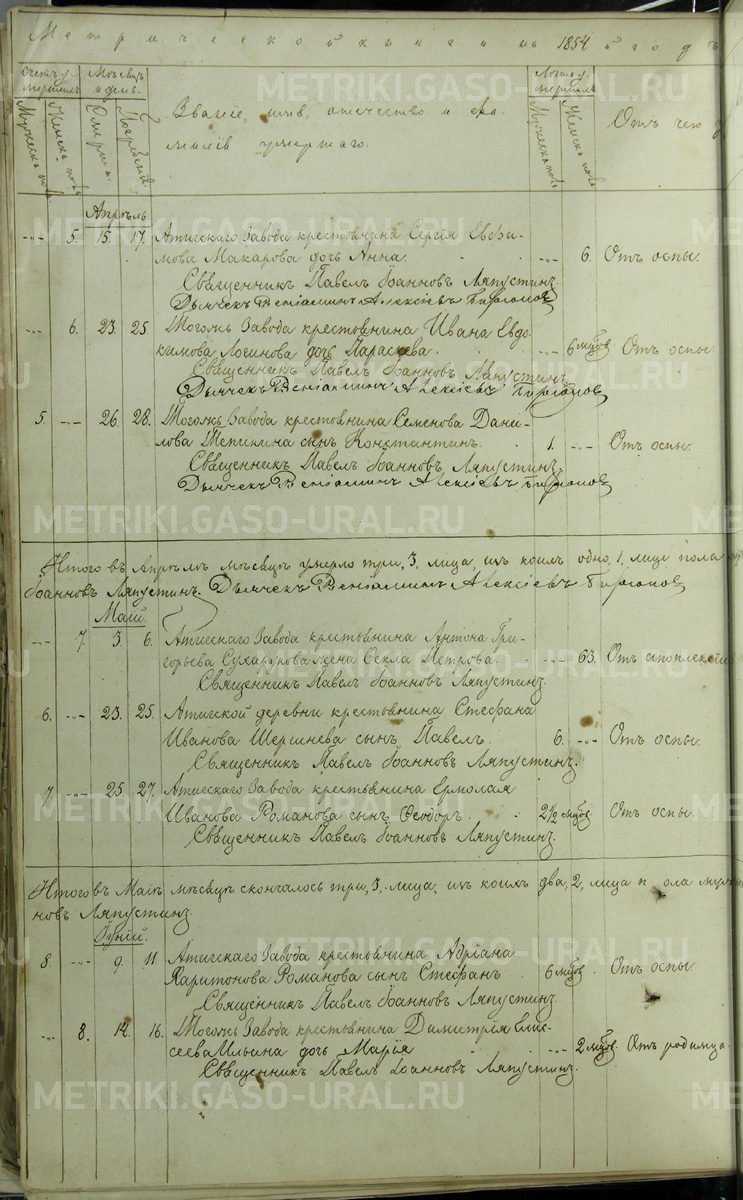 Метрической книги на 1854й годъ
Счетъ умершихъ. Мѣсяцъ и день. Лѣта умершаго.
Мужеска пола Женска пола Смерти. Погребенія Званіе, имя, отчество и фамилія умершаго. Мужеска пола Женска пола Отъ чего
Апрѣль.
5. 15. 17. Атигскаго Завода крестьянина Сергія Евфи-
мова Макарова дочь Анна. 6. Отъ оспы.
Священникъ Павелъ Іоанновъ Ляпустинъ.
Дьячекъ Веніаминъ Алексіевъ
6. 23. 25. Тогожъ Завода крестьянина Ивана Евдо-
кимова Логинова дочь Параскева. 6 мцовъ Отъ оспы
Священникъ Павелъ Іоанновъ Ляпустинъ
Дьячекъ Веніаминъ Алексіевъ
5. 26. 28. Тогожъ Завода крестьянина Семенова Дани-
лова Тепикина сынъ Константинъ. 1. Отъ оспы.
Священникъ Павелъ Іоанновъ Ляпустинъ.
Дьячекъ Веніаминъ Алексіевъ
Итого въ Апрѣлѣ мѣсяцѣ умерло три, 3, лица, изъ коихъ одно, 1, лице пола
Іоанновъ Ляпустинъ. Дьячекъ Веніаминъ Алексіевъ
Маій.
7. 3. 6. Атигскаго Завода крестьянина Антона Гри-
горьева Сухарукова жена Фекла Петрова. 63. Отъ апоплексіи
Священникъ Павелъ Іоанновъ Ляпустинъ
6. 23. 25. Атигской деревни крестьянина Стефана
Иванова Шершнева сынъ Павелъ. 6. Отъ оспы.
Священникъ Павелъ Іоанновъ Ляпустинъ.
7 25. 27. Атигскаго Завода крестьянина Ермолая
Иванова Романова сынъ Ѳеодоръ. 2½ мцовъ Отъ оспы.
Священникъ Павелъ Іоанновъ Ляпустинъ.
Итого въ Маіѣ мѣсяцѣ скончалось три, 3, лица, изъ коихъ два, 2, лица пола
новъ Ляпустинъ.
Іуній.
8. 9. 11. Атигскаго Завода крестьянина Адріана
Харитонова Романова сынъ Стефанъ 6 мцовъ. Отъ оспы
Священникъ Павелъ Іоанновъ Ляпустинъ
8. 14. 16. Тогожъ Завода крестьянина Димитрія Елис-
сеева Ильина дочь Марія 2 мцовъ. Отъ родимца.
Священникъ Павелъ Іоанновъ Ляпустинъ.
METRIKI.GASO-URAL.RU